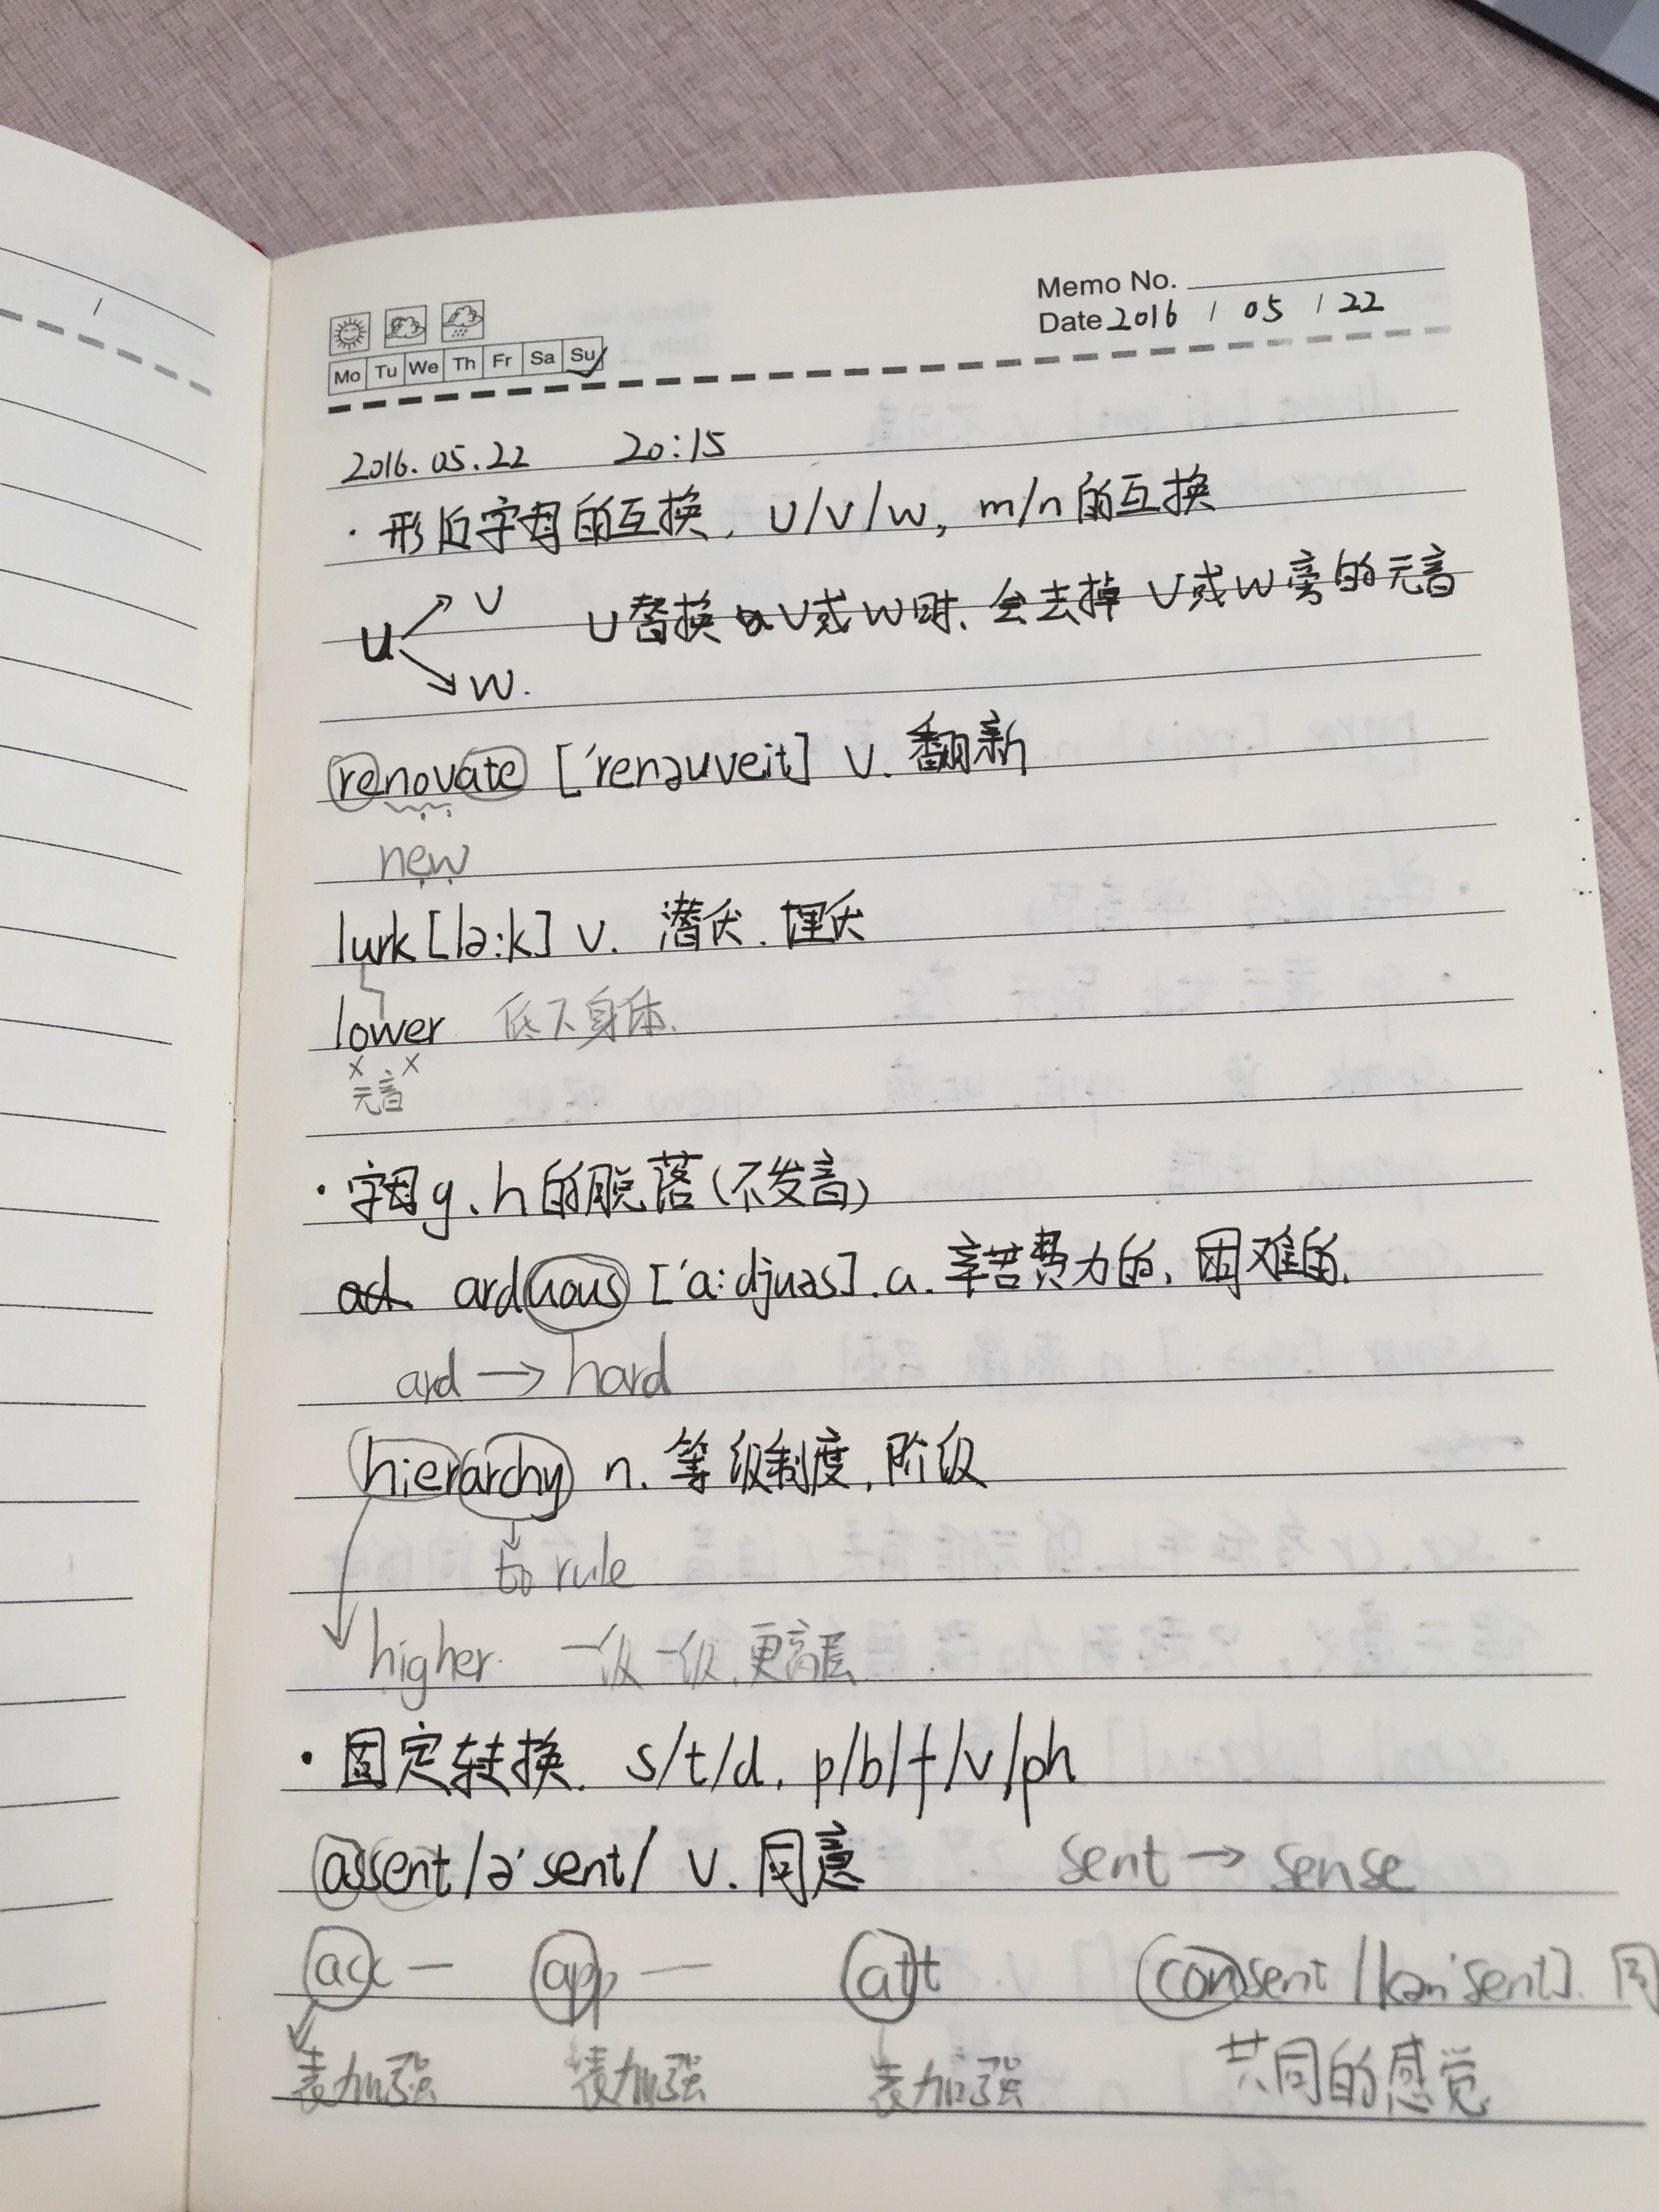 Memo No.
Date 2016 / 05 / 22
Mo Tu We Th Fr Sa Su
2016.05.22 20:15
· 形近字母的互换. u/v/w, m/n的互换
u → v
→ w.
u替换v或w时. 会去掉v或w旁的元音
renovate ['renəuveit] v. 翻新
new
lurk [lə:k] v. 潜伏. 埋伏
lower 低下身体.
x x
元音
· 字母g、h的脱落(不发音)
ad arduous ['a:djuəs]. a. 辛苦费力的, 困难的.
ard → hard
hierarchy n. 等级制度, 阶级
to rule
higher. 一级一级, 更高层
· 固定转换. s/t/d. p/b/f/v/ph
assent /ə'sent/ v. 同意 sent → sense
acc — app — att consent /kən'sent]. 同
表加强 表加强 表加强 共同的感觉